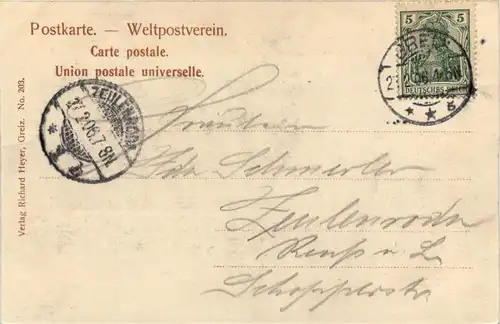 Postkarte. — Weltpostverein.
Carte postale.
Union postale universelle.
5 5
DEUTSCHES REICH
GREIZ
ZEULENRODA
Verlag Richard Heyer, Greiz. No. 203.
Fräulein
Ida Schmerler
Zeulenroda
Reuß ä. L.